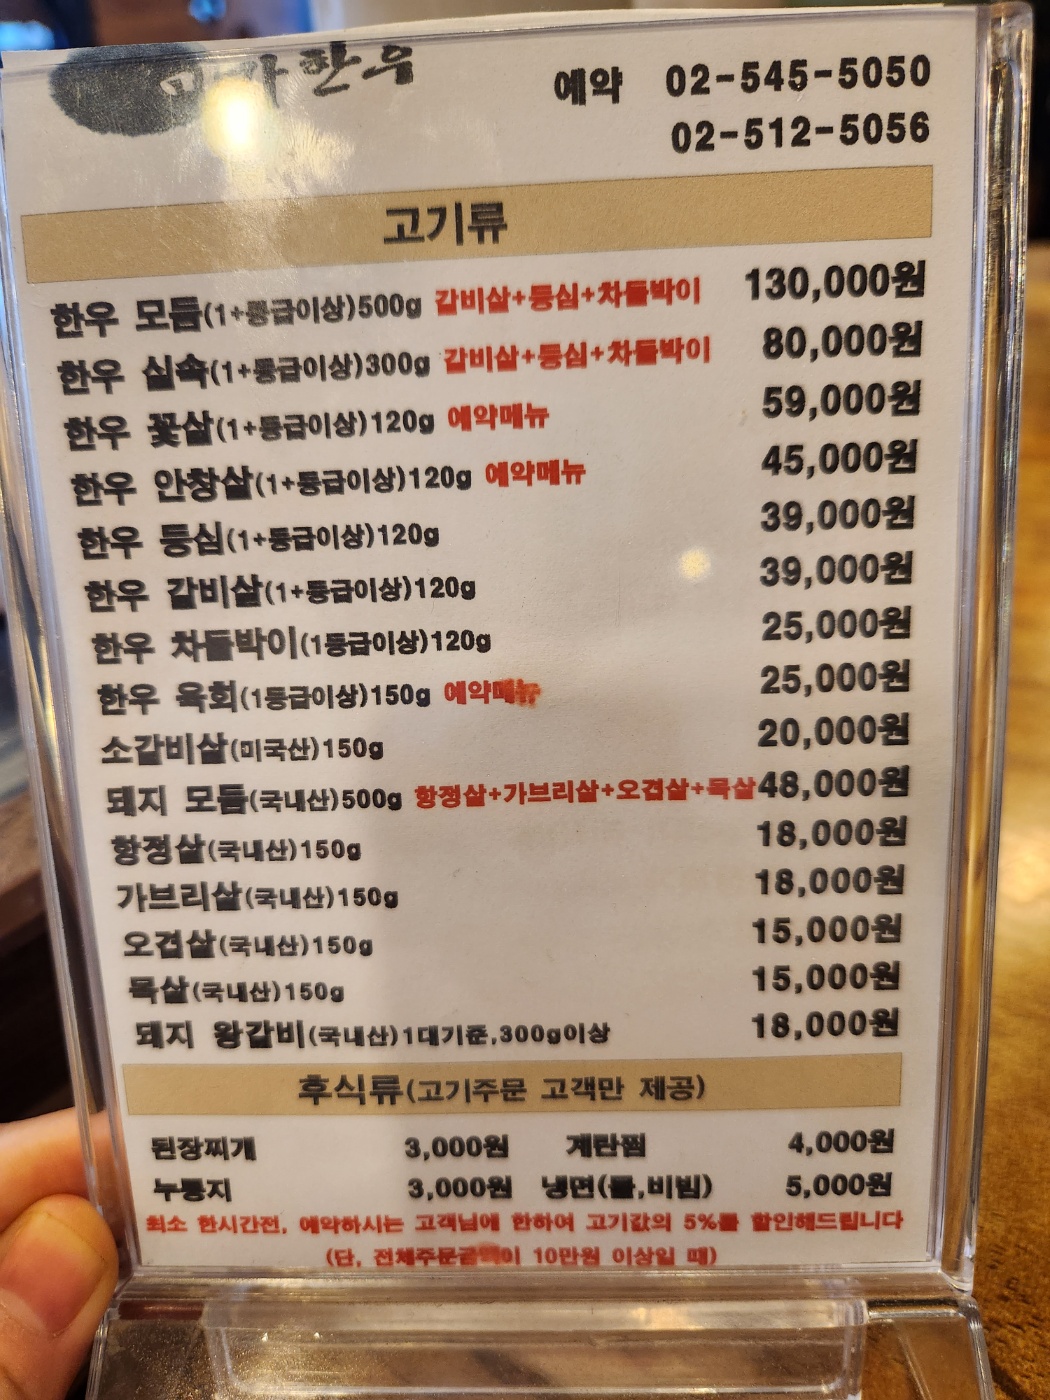 한우
예약 02-545-5050
02-512-5056
고기류
한우 모듬(1+등급이상)500g 갈비살+등심+차돌박이 130,000원
한우 실속(1+등급이상)300g 갈비살+등심+차돌박이 80,000원
한우 꽃살(1+등급이상)120g 예약메뉴 59,000원
한우 안창살(1+등급이상)120g 예약메뉴 45,000원
한우 등심(1+등급이상)120g 39,000원
한우 갈비살(1+등급이상)120g 39,000원
한우 차돌박이(1등급이상)120g 25,000원
한우 육회(1등급이상)150g 예약메뉴 25,000원
소갈비살(미국산)150g 20,000원
돼지 모듬(국내산)500g 항정살+가브리살+오겹살+목살 48,000원
항정살(국내산)150g 18,000원
가브리살(국내산)150g 18,000원
오겹살(국내산)150g 15,000원
목살(국내산)150g 15,000원
돼지 왕갈비(국내산)1대기준,300g이상 18,000원
후식류(고기주문 고객만 제공)
된장찌개 3,000원 계란찜 4,000원
누룽지 3,000원 냉면(물,비빔) 5,000원
최소 한시간전, 예약하시는 고객님에 한하여 고기값의 5%를 할인해드립니다
(단, 전체주문금액이 10만원 이상일 때)